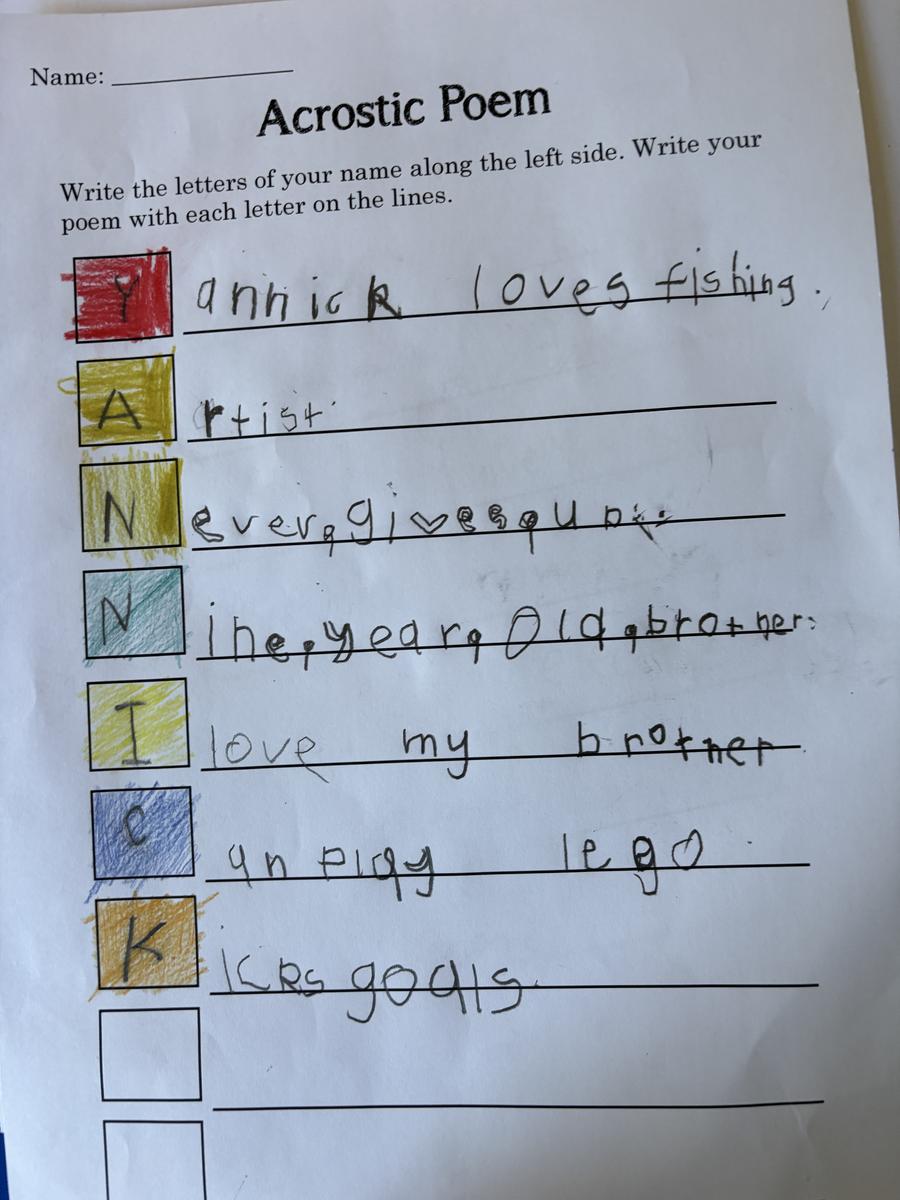 Name:
Acrostic Poem
Write the letters of your name along the left side. Write your
poem with each letter on the lines.
Yannick loves fishing.
Artist
Never, gives, up.
Nine, year, Old, brother.
I love my brother
Can play lego
Kicks goals